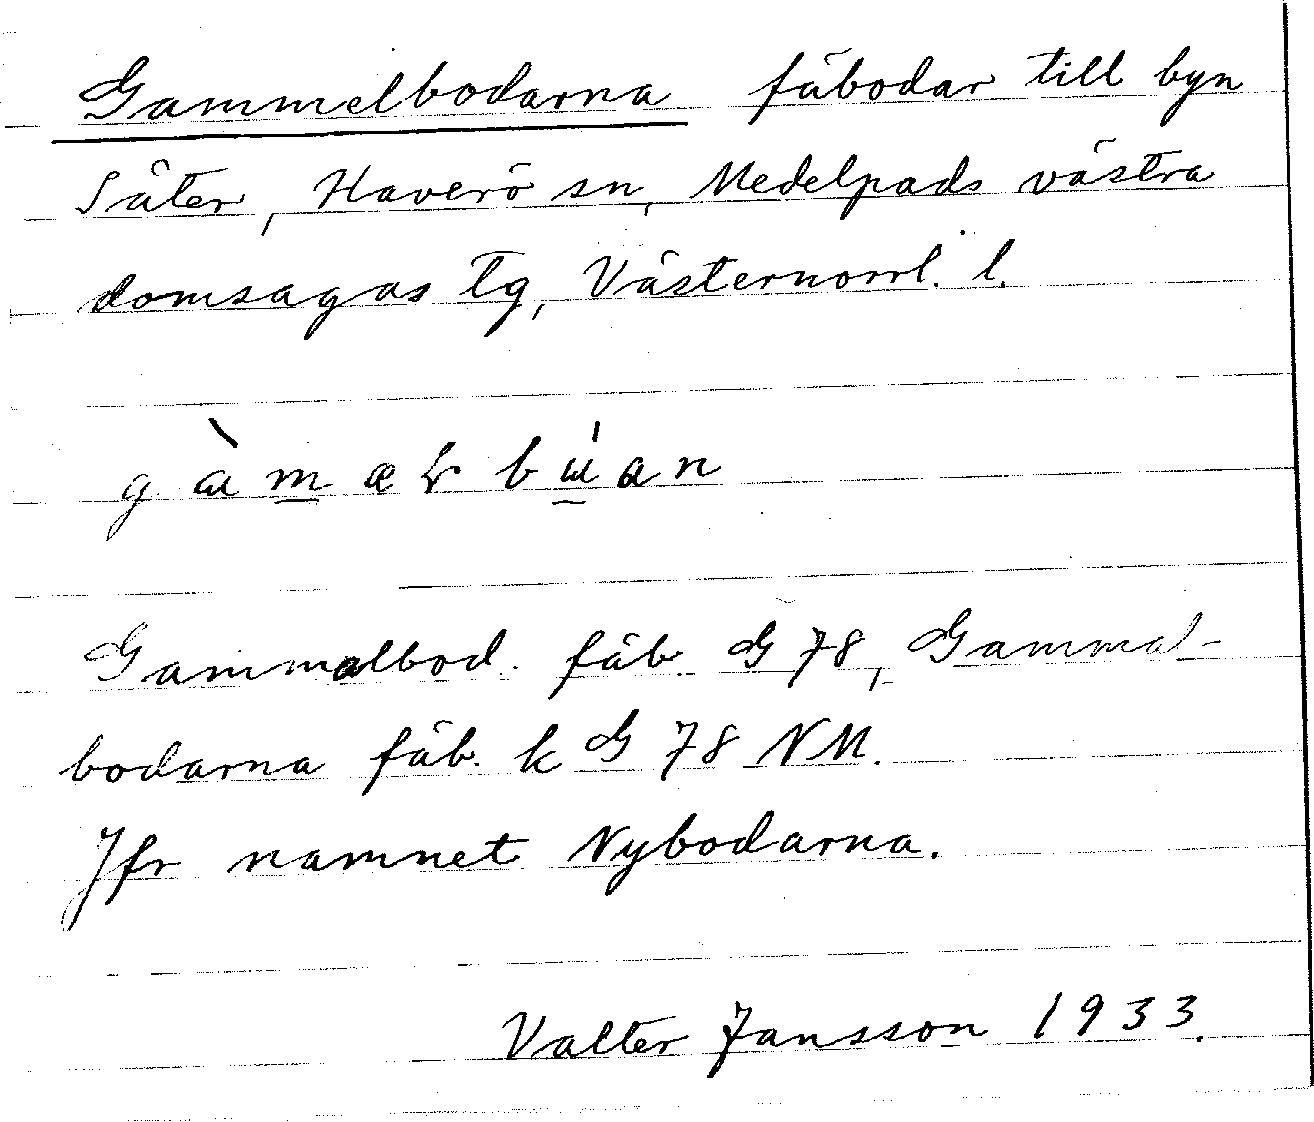 Gammelbodarna fäbodar till byn
Säter, Haverö sn, Medelpads västra
domsagas tg, Västernorrl. l.
Gammalbod. fäb. G 78, Gammal-
bodarna fäb. k G 78 NM.
Jfr namnet Nybodarna.
Valter Jansson 1933.